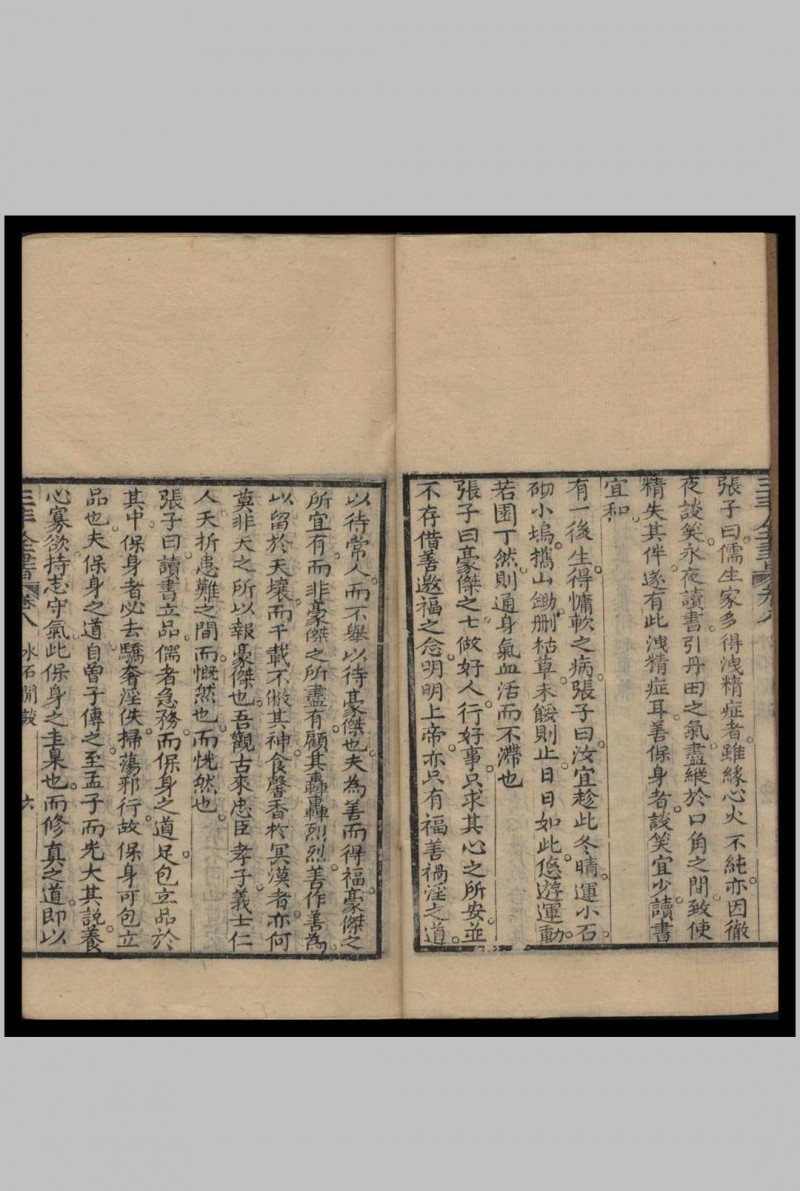 張子曰儒生家多得洩精症者雖緣心火不純亦因徹
夜談笑永夜讀書引丹田之氣盡縱於口角之間致使
精失其伴遂有此洩精症耳善保身者談笑宜少讀書
宜和
有一後生得慵軟之病張子曰汝宜趁此冬晴運小石
砌小塢攜山鋤刪枯草未餒則止日日如此悠遊運動
若園丁然則通身氣血活而不滯也
張子曰豪傑之士做好人行好事只求其心之所安並
不存借善邀福之念明明上帝亦只有福善禍淫之道
以待常人而不舉以待豪傑也夫為善而得福豪傑之
所宜有而非豪傑之所盡有顧其轟轟烈烈善作善為
以留於天壤而千載不敝其神食馨香於冥漠者亦何
莫非天之所以報豪傑也吾觀古來忠臣孝子義士仁
人夭折患難之間而慨然也而恍然也
張子曰讀書立品儒者急務而保身之道足包立品於
其中保身者必去驕奢淫佚掃蕩邪行故保身可包立
品也夫保身之道自曾子傳之至孟子而光大其說養
心寡欲持志守氣此保身之圭臬也而修真之道即以
三丰全書 卷八 水石閒談 六